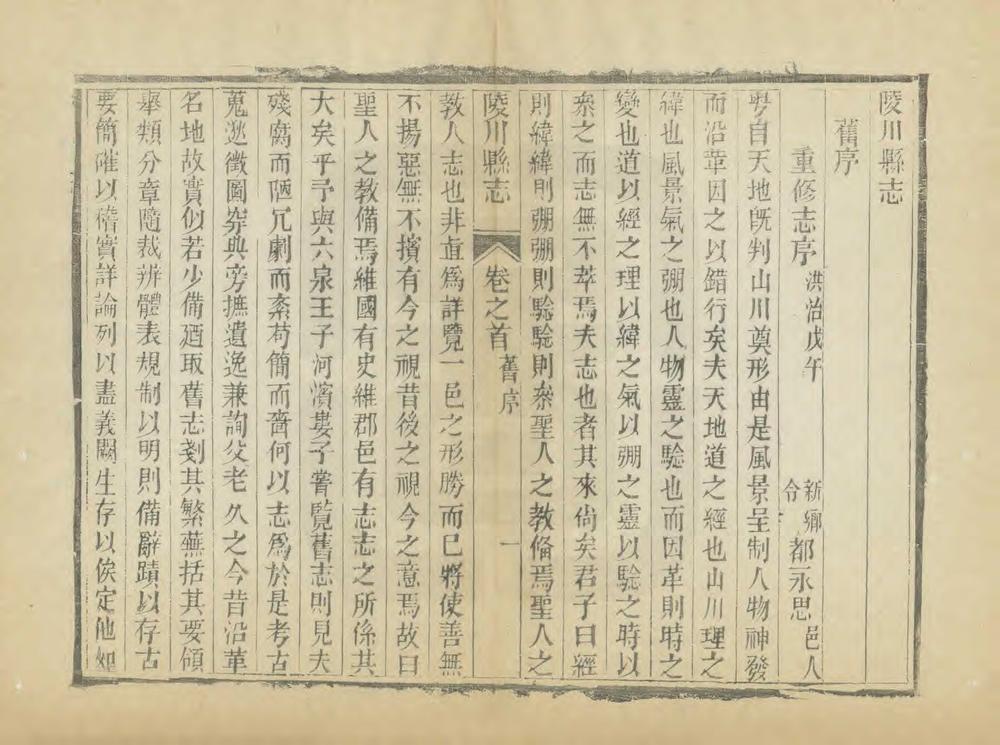 陵川縣志
舊序
重修志序 洪治戊午 新鄉令 都永思 邑人
粤自天地旣判山川奠形由是風景呈制人物神發
而沿革因之以錯行矣夫天地道之經也山川理之
緯也風景氣之弸也人物靈之騐也而因革則時之
變也道以經之理以緯之氣以弸之靈以騐之時以
叅之而志無不萃焉夫志也者其來尙矣君子曰經
則緯緯則弸弸則騐騐則叅聖人之教俻焉聖人之
陵川縣志 卷之首 舊序 一
教人志也非直爲詳覽一邑之形勝而已將使善無
不揚惡無不擯有今之視昔後之視今之意焉故曰
聖人之教備焉維國有史維郡邑有志志之所係其
大矣乎予與六泉王子河濱婁子甞覧舊志則見夫
殘腐而陋冗劇而紊苟簡而嗇何以志爲於是考古
蒐逖徵圖桒典旁摭遺逸兼詢父老久之今昔沿革
名地故實似若少備廼取舊志剗其繁蕪括其要領
舉類分章隨裁辨體表規制以明則備辭蹟以存古
要簡確以稽實詳論列以盡義闕生存以俟定他如